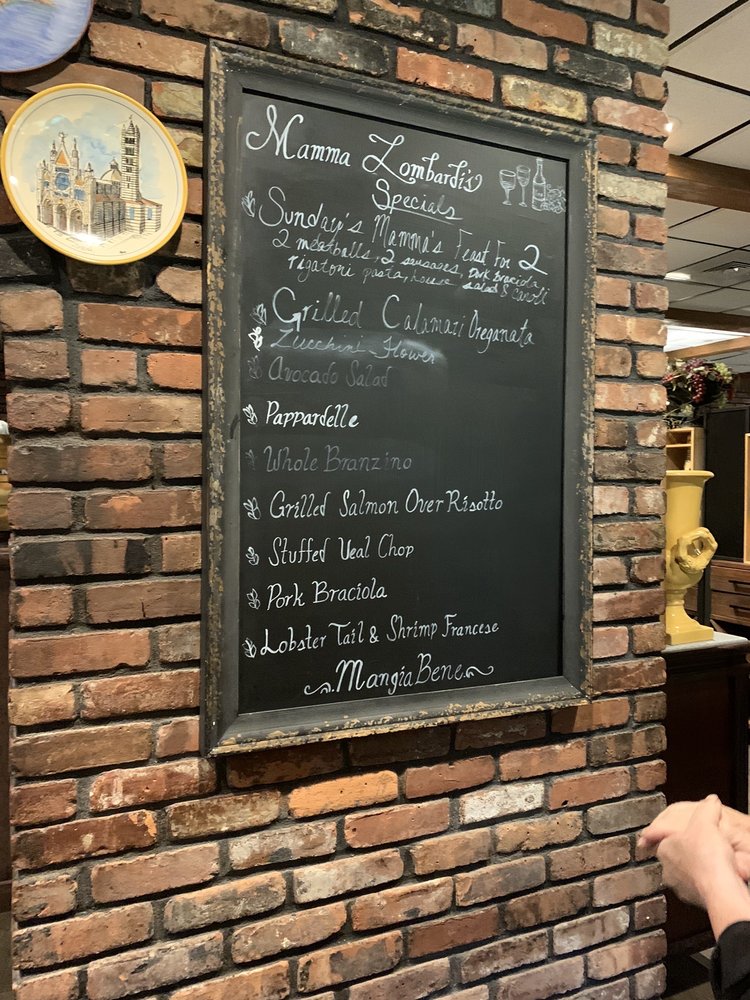 Mamma Lombardi's
Specials
Sunday's Mamma's Feast For 2
2 meatballs, 2 sausages, Pork Braciola,
rigatoni pasta, house salad & Canoli
Grilled Calamari Oreganata
Zucchini Flower
Avocado Salad
Pappardelle
Whole Branzino
Grilled Salmon Over Risotto
Stuffed Veal Chop
Pork Braciola
Lobster Tail & Shrimp Francese
Mangia Bene